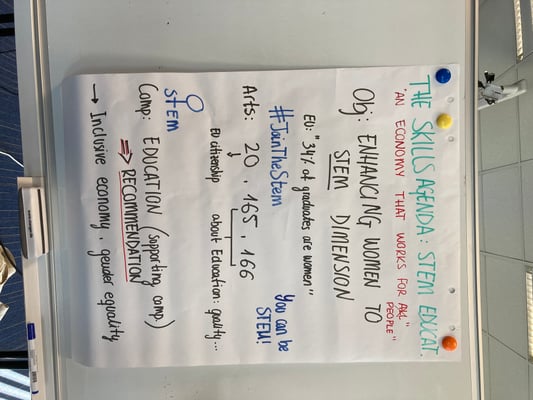 THE SKILLS AGENDA: STEM EDUCAT.
"AN ECONOMY THAT WORKS FOR ALL"
PEOPLE"
Obj: ENHANCING WOMEN TO
STEM DIMENSION
EU: "34% of graduates are women"
#JoinTheStem
You can be
STEM!
Arts: 20, 165, 166
EU citizenship about Education: quality...
STEM
Comp: EDUCATION (supporting comp.)
⇒ RECOMMENDATION
→ Inclusive economy, gender equality